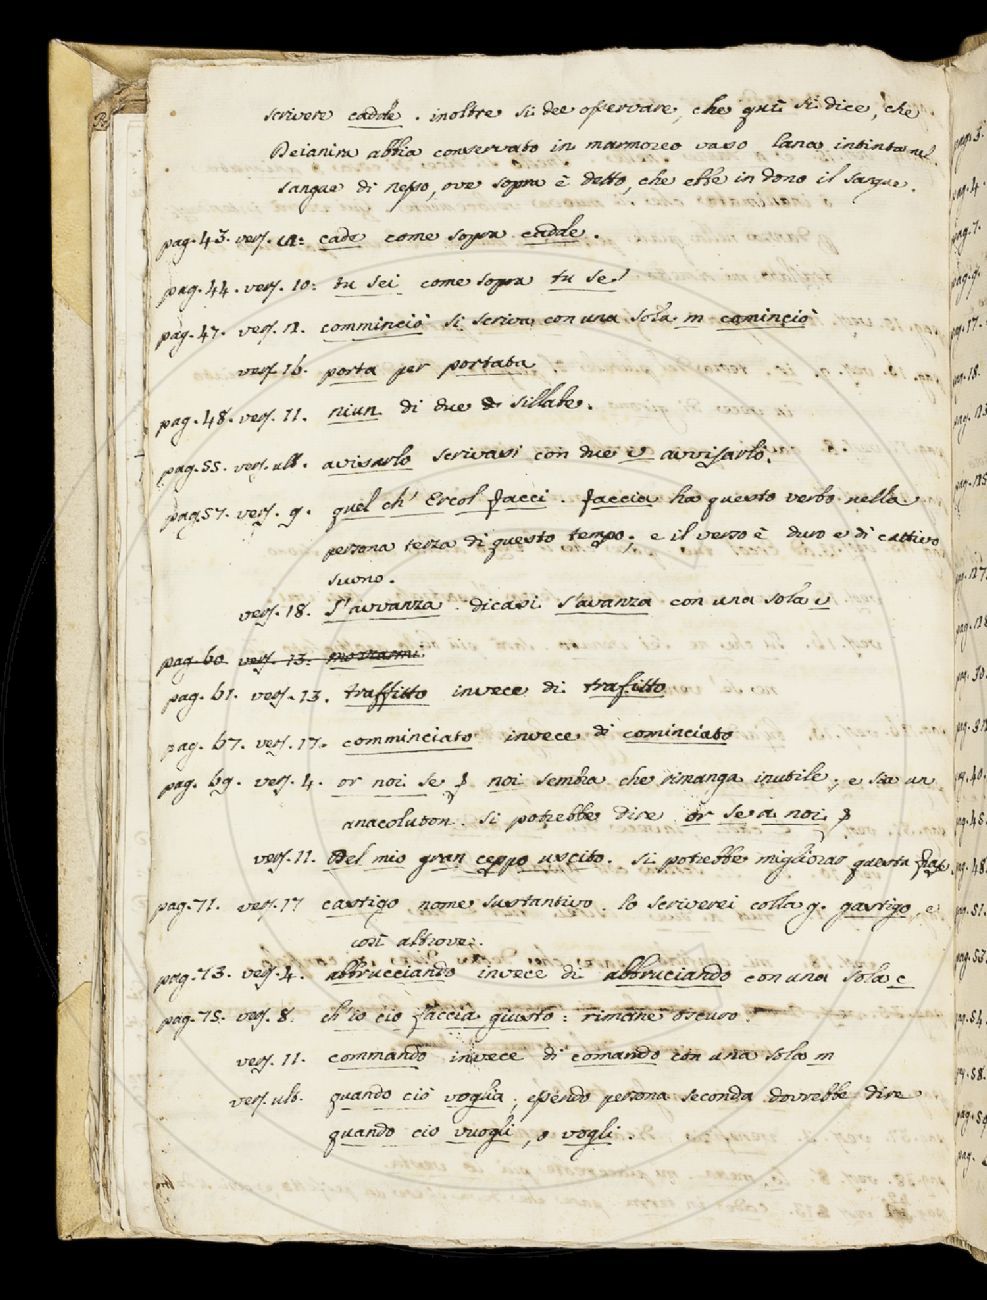 scrivere cadde. inoltre si dee osservare, che quì si dice, che
Deianira abbia conservato in marmoreo vaso lana intinta nel
sangue di nesso, ove sopra è detto, che ebbe in dono il sangue.
pag. 43. vers. 12: cade come sopra cadde.
pag. 44. vers. 10: tu sei come sopra tu se'
pag. 47. vers. 12. comminciò si scriva con una sola m cominciò
vers. 16. porta per portata.
pag. 48. vers. 11. niun di due sillabe.
pag. 55. vers. ult. avisarlo scrivasi con due v avvisarlo.
pag. 57. vers. 9. quel ch' Ercol facci. faccia ha questo verbo nella
persona terza di questo tempo; e il verso è duro e di cattivo
suono.
vers. 18. s'avvanza. dicasi s'avanza con una sola v
pag. 60. vers. 13.
pag. 61. vers. 13. traffitto invece di trafitto
pag. 67. vers. 17. comminciato invece di cominciato
pag. 69. vers. 4. or noi se noi sembra che rimanga inutile; e sia un
anacoluton. si potrebbe dire or se a noi
vers. 11. Del mio gran ceppo uscito. si potrebbe migliorar questa frase.
pag. 71. vers. 17 castigo nome sustantivo. Io scriverei colla g. gastigo, e
così altrove.
pag. 73. vers. 4. abbrucciando invece di abbruciando con una sola c
pag. 75. vers. 8. ch'io ciò faccia giusto: rimane oscuro.
vers. 11. commando invece di comando con una sola m
vers. ult. quando ciò voglia; essendo persona seconda dovrebbe dire
quando cio vuogli, o vogli.
pag. 3.
pag. 4.
pag. 7.
pag. 9.
pag. 17.
pag. 18.